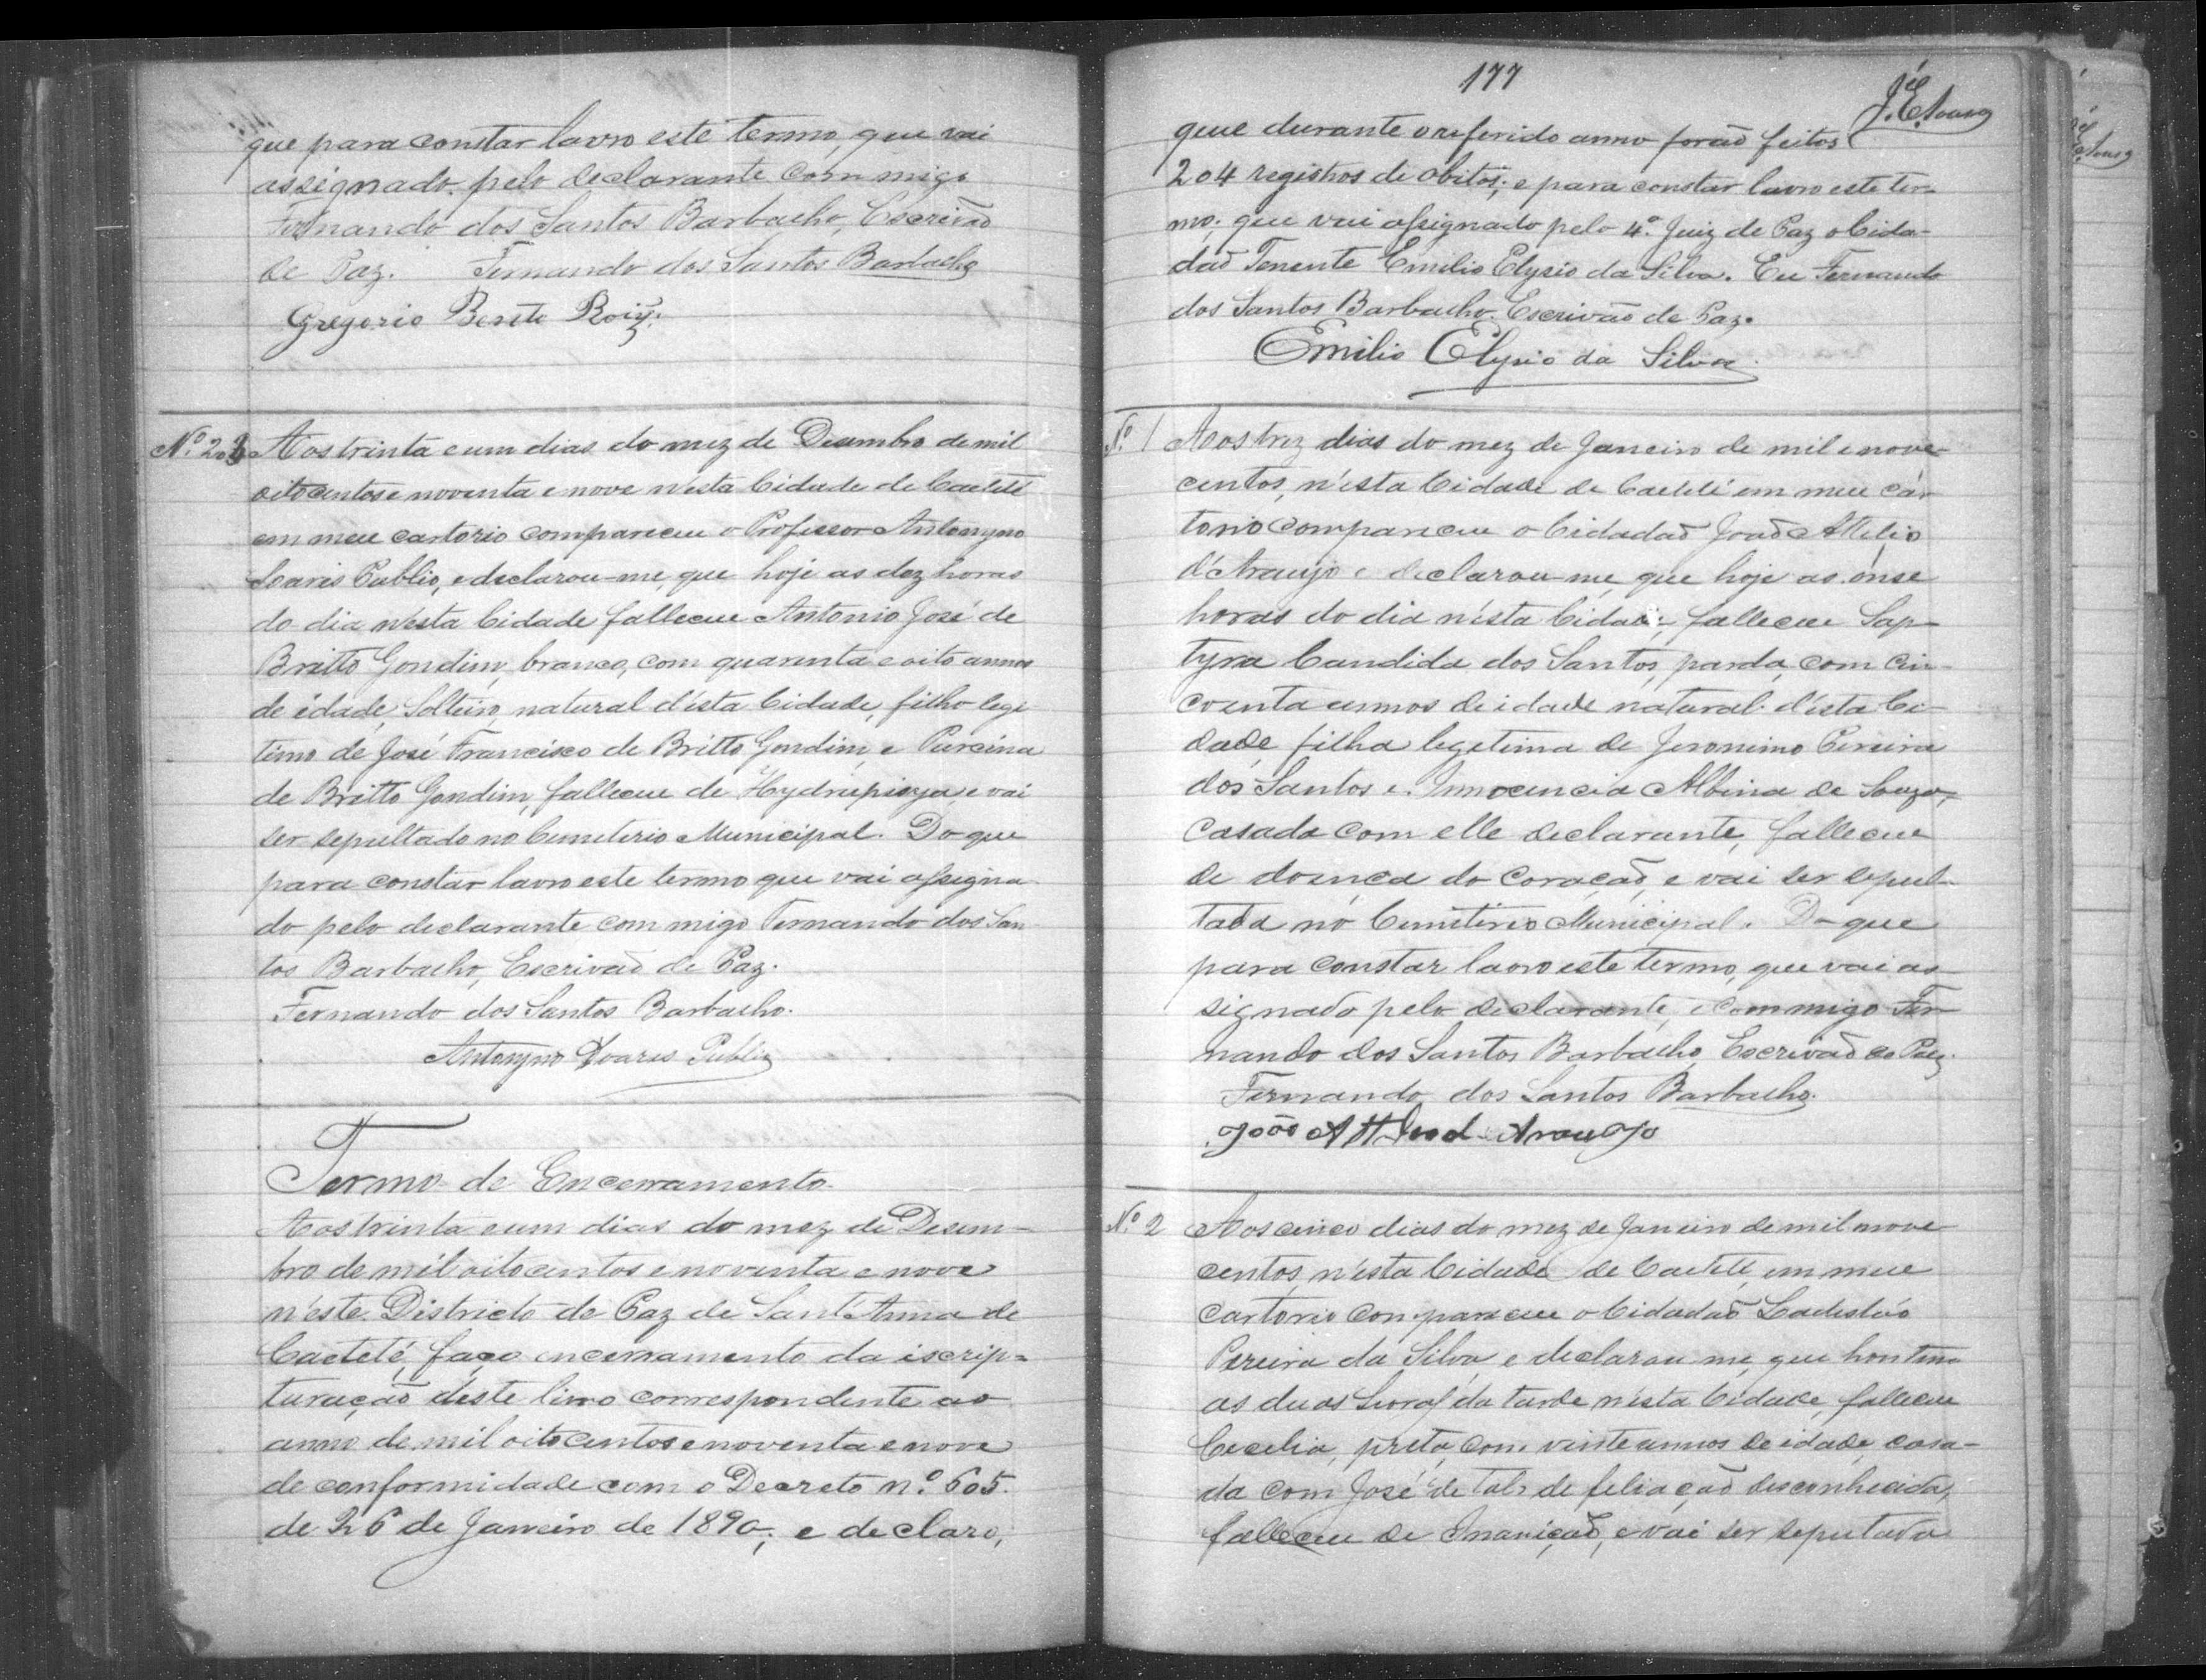 que para constar lavro este termo, que vai
assignado pelo declarante commigo
Fernando dos Santos Barbacho, Escrivaõ
de Paz. Fernando dos Santos Barbacho
Gregorio Roiz.
Nº 20
Aos trinta e um dias do mez de Desembro de mil
oitocentos e noventa e nove n'esta Cidade de Caeteté
em meu cartorio compareceu o Professor Antonyno
Soares Publio, e declarou-me, que hoje as dez horas
do dia n'esta Cidade falleceu Antonio José de
Britto Gondim, branco, com quarenta e oito annos
de idade, Solteiro, natural d'esta Cidade, filho legi
timo de José Francisco de Britto Gondim, e Purcina
de Britto Gondim, falleceu de Hydrupisya, e vai
ser sepultado no Cemeterio Municipal. Do que
para constar lavro este termo que vai assigna
do pelo declarante commigo Fernando dos San
tos Barbacho, Escrivaõ de Paz.
Fernando dos Santos Barbacho.
Antonyno Soares Publio
Termo de Encerramento
Aos trinta e um dias do mez de Desem-
bro de mil oitocentos e noventa e nove
n'este Districto de Paz de Sant'Anna de
Caeteté, faço encerramento da iscrip=
turaçaõ deste livro correspondente ao
anno de mil oitocentos e noventa e nove
de conformidade com o Decreto n.º 605.
de 26 de Janeiro de 1890; e declaro,
177
J. E. Souza
que durante o referido anno foraõ feitos
204 registros de obitos; e para constar lavro este ter-
mo, que vai assignado pelo 4º Juiz de Paz o Cida-
daõ Tenente Emilio Elysio da Silva. Eu Fernando
dos Santos Barbacho. Escrivaõ de Paz.
Emilio Elysio da Silva.
Nº 1
Aos trez dias do mez de Janeiro de mil e nove-
centos, n'esta Cidade de Caeteté em meu car
torio compareceu o Cidadaõ Joaõ Attilio
d'Araujo e declarou-me, que hoje as onse
horas do dia n'esta Cidade, falleceu Sap-
tyra Candida dos Santos, parda, com cin-
coenta annos de idade natural d'esta Ci-
dade, filha legetima de Jeronimo Pereira
dos Santos e Innocencia Albina de Souza,
Casada com elle declarante, falleceu
de doença do Coraçaõ, e vai ser sepul-
tada no Cemiterio Municipal. Do que
para constar lavro este termo, que vai as
signado pelo declarante, e commigo Fer-
nando dos Santos Barbacho, Escrivaõ de Paz.
Fernando dos Santos Barbacho.
Joõo Araujo
Nº 2
Aos cinco dias do mez de Janeiro de mil nove
centos, n'esta Cidade de Caeteté, em meu
cartorio compareceu o Cidadaõ Ladisláo
Pereira da Silva, e declarou-me, que hontem
as duas horas da tarde n'esta Cidade, falleceu
Cecilia, preta, com vinte annos de idade, casa-
da com José de Tal, de filiaçaõ desconhecida,
falleceu de Inaniçaõ, e vai ser seputada